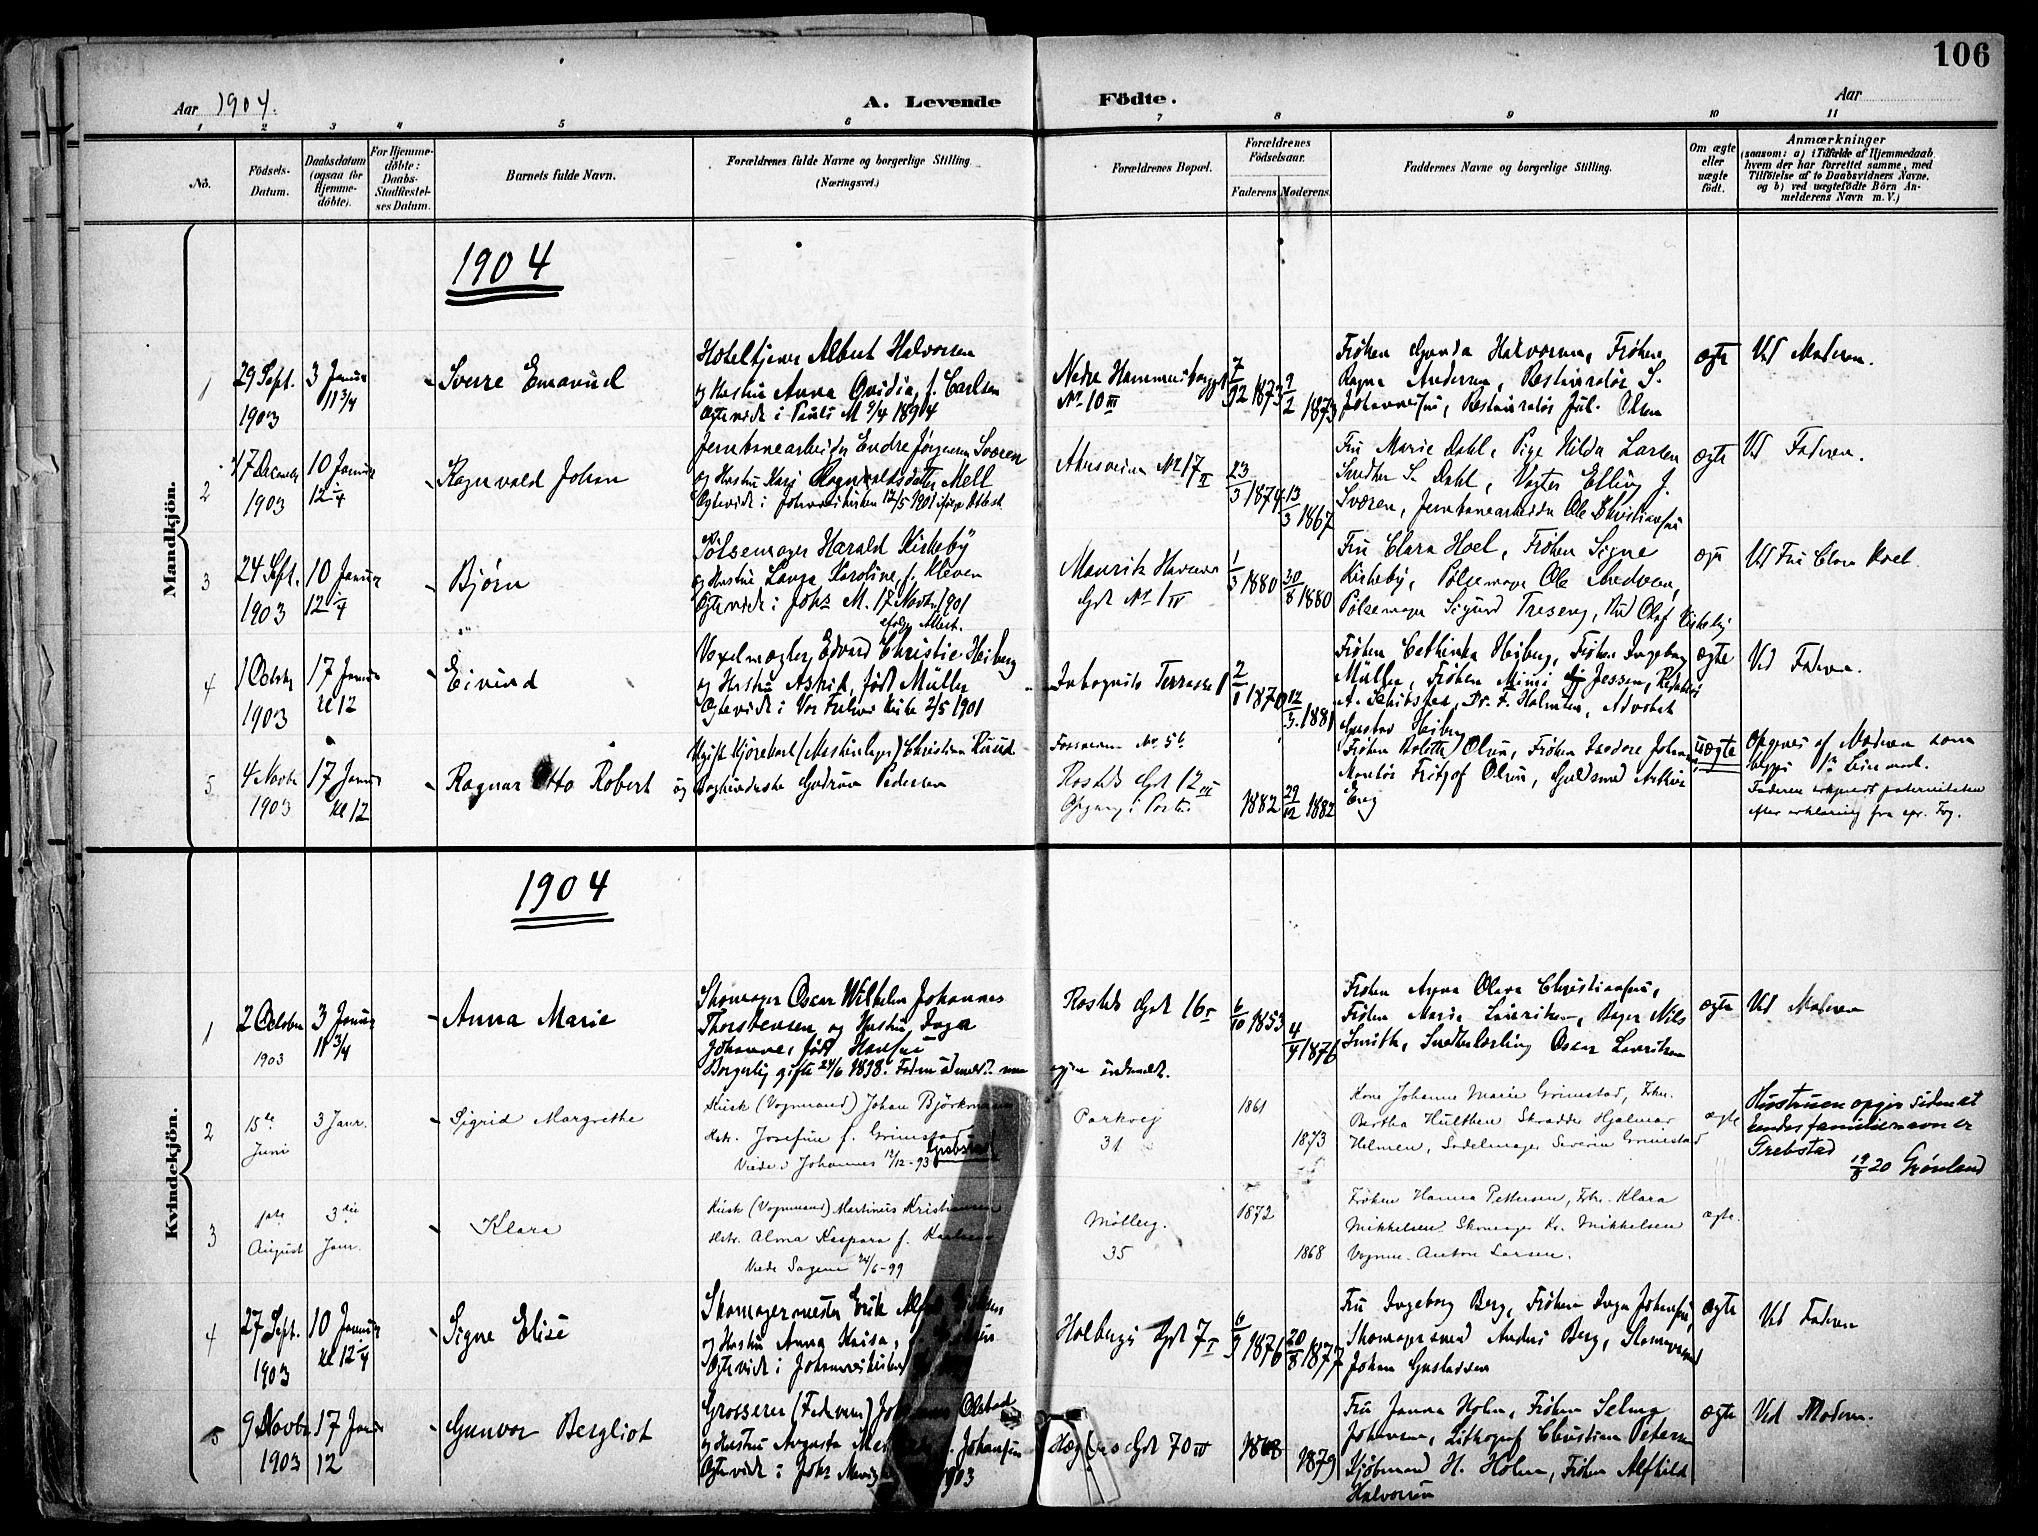 106
Aar 1904.
A. Levende Födte.
Aar
1 2 3 4 5 6 7 8 9 10 11
No.
Födsels-Datum.
Daabsdatum (ogsaa for Hjemme-döbte).
For Hjemme-döbte: Daabs-Stadfæstel-ses Datum.
Barnets fulde Navn.
Forældrenes fulde Navne og borgerlige Stilling. (Næringsvei.)
Forældrenes Bopæl.
Forældrenes Födselsaar.
Faderens. Moderens.
Faddernes Navne og borgerlige Stilling.
Om ægte eller uægte födt.
Anmærkninger
(saasom: a) i Tilfælde af Hjemmedaab, hvem der har forrettet samme, med Tilföielse af to Daabsvidners Navne, og b) ved uægtefödte Börn An-melderens Navn m. V.)
Mandkjön.
1904
1
29 Sept. 1903
3 Januar 11 3/4
Sverre Emanuel
Hoteltjener Albert Halvorsen
og Hustru Anna Ovidia, f. Carlsen
Ægteviede i Pauls M 2/4 1894
Nedre Hammersborggt
No 10 III
7/12 1873
9/2 1873
Frøken Gunda Halvorsen, Frøken
Ragna Andersen, Restauratør S.
Johannessen, Restauratør Jul. Olsen
ægte
Ved Moderen.
2
17 Decembr 1903
10 Januar 12 1/4
Ragnvald Johan
Jernbanearbeider Endre Jørgensen Sværen
og Hustru Kari Ragnvaldsdatter Mell
Ægteviede i Johanneskirken 12/5 1901 ifølge Attest
Akersveien No 17 II
23/3 1874
13/3 1867
Fru Marie Dahl, Pige Hilda Larsen
Snedker S. Dahl, Vogter Elling J.
Sværen, Jernbanearbeider Ole Christiansen
ægte
Ved Faderen.
3
24 Sept. 1903
10 Januar 12 1/4
Bjørn
Pølsemager Harald Kirkeby
og Hustru Laura Karoline, f. Kleven
Ægteviede i Johs M. 17 Novbr 1901
ifølge Attest.
Mauritz Hansens
Gde No 1 IV
1/3 1880
30/8 1880
Fru Clara Hoel, Frøken Signe
Kirkeby, Pølsemager Ole Medven,
Pølsemager Sigurd Treseng, Bud Olaf Kirkeby
ægte
Ved Fru Clara Hoel.
4
1 Octbr 1903
17 Januar kl 12
Eivind
Vexelmægler Edvard Christie Heiberg
og Hustru Astrid, født Müller
Ægteviede i Vor Frelsers Kirke 2/5 1901
Incognito Terrasse 1
2/1 1870
12/3 1881
Frøken Cathinka Heiberg, Frøken Ingeborg
Müller, Frøken Mimi Jessen, Redaktør
A. Schibsted, Dr. F. Holmsen, Advokat
Gustav Heiberg
ægte
Ved Faderen.
5
4 Novbr 1903
17 Januar kl 12
Ragnar Otto Robert
Ugift Kjørekarl (Maskinlager) Christian Ruud
og Bogbinderske Gudrun Pedersen
Fossveien No 5 b
Rosteds Gde 12 III
Opgang i Porten
1882
29/12 1882
Frøken Lolotte Olsen, Frøken Isedore Johansen,
Montør Fritjof Olsen, Guldsmed Arthur
Eng
uægte
Opgives af Moderen som
begges 1ste Leiermaal.
Faderen erkjendt paterniteten
efter erklæring fra opr. Fog.
Kvindekjön.
1904
1
2 October 1903
3 Januar 11 3/4
Anna Marie
Skomager Oscar Wilhelm Johannes
Thorstensen og Hustru Inga
Johanne, født Hansen
Borgerlig gifte 24/6 1898. Faderen udmeldt men
igjen indmeldt.
Rosteds Gde 16 I
6/10 1853
4/4 1876
Frøken Anna Olava Christiansen,
Frøken Marie Lauritsen, Bager Nils
Smith, Snedkerlærling Oscar Lauritsen
ægte
Ved Moderen
2
15de Juni
3 Janr.
Sigrid Margrethe
Kusk (Vognmand) Johan Björkmann
Hstr. Josefine f. Grimstad
Grebstad
Viede i Johannes 12/12-93
Parkvej
31
1861
1873
Kone Johanne Marie Grimstad, Frkn.
Bertha Hulthen Skrædder Hjalmar
Helmen, Sadelmager Severin Grimstad
ægte
Hustruen opgir siden at
hendes familienavn er
Grebstad
19/8 20 Grønland
3
1ste August
3die Janr.
Klara
Kusk (Vognmand) Martinus Kristiansen
Hstr. Alma Kaspara f. Karlsen
Viede Sagene 24/6-99
Möllerg.
35
1872
1868
Frøken Hanna Pettersen, Frk. Klara
Mikkelsen Skomager Kr. Mikkelsen
Vognm. Anton Larsen.
ægte.
4
27 Sept. 1903
10 Januar kl 12 1/4
Signe Elise
Skomagermester Erik Alfred
og Hustru Anna Kaisa,
Ægteviede i Johanneskirken
Holbergs Gde 7 I
6/9 1876
20/8 1877
Fru Ingeborg Berg, Frøken Inga Johansen,
Skomagersvend Anders Berg, Skomagersvend
Johan Gustavsen
ægte
Ved Faderen
5
9 Novbr 1903
17 Januar 12
Gunvor Bergliot
Grosserer (Fedevarer) Olstad
og Hustru Augusta Johansen
Ægteviede i Johs Menighed 1903
Hægdeho Gde 70 IV
1868
1879
Fru Janna Holm, Frøken Selma
Johansen, Lithograf Christian Petersen
Kjøbmand H. Holm, Frøken Alfhild
Halvorsen
ægte
Ved Moderen.